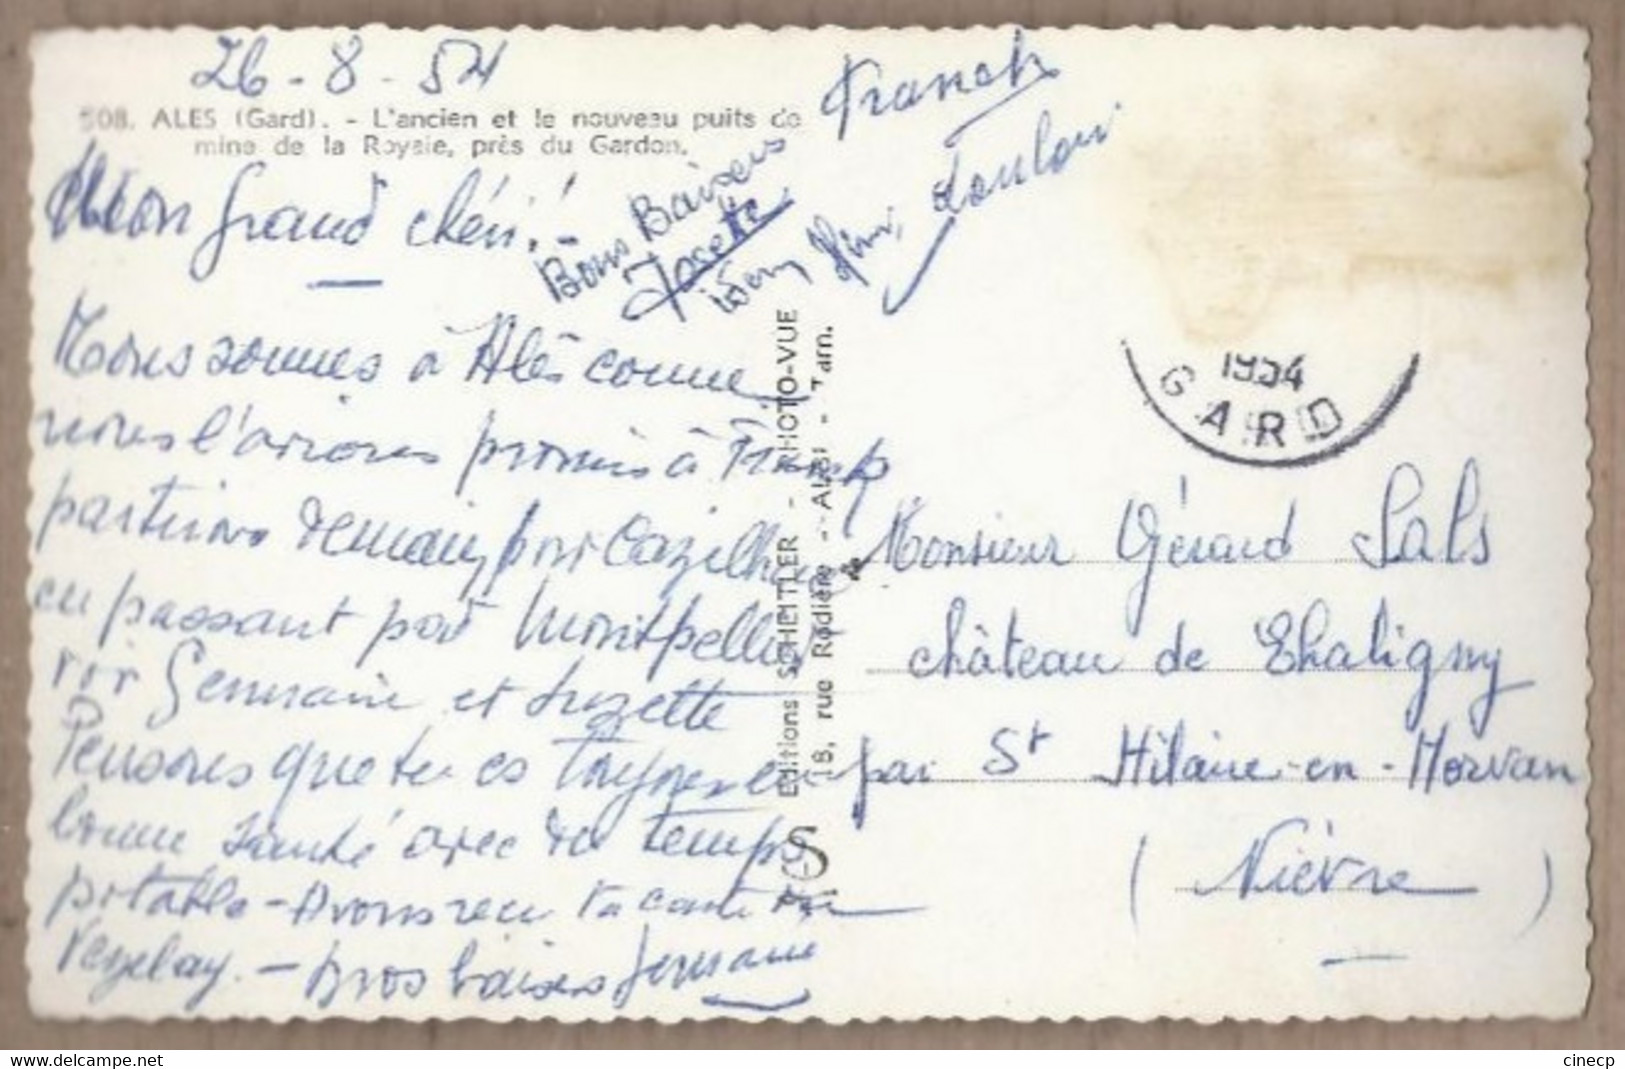 26-8-54
508. ALES (Gard). - L'ancien et le nouveau puits de
mine de la Royale, près du Gardon.
Mon grand chéri!
Nous sommes à Alès comme
nous l'avions promis à Franck
partirons demain pour Cazilhac
en passant par Montpellier
voir Germaine et Suzette
Pensons que tu es toujours en
bonne santé avec du temps
potable - Avons reçu ta carte de
Vezelay. - Gros baisers Germaine
Bons Baisers
Josette
Franck
idem
Editions SCHEITLER - PHOTO-VUE
18, rue Rodière - ALBI - Tarn.
S
1954
GARD
Monsieur Gérard Sals
château de Chaligny
par St Hilaire-en-Morvan
(Nièvre)
cinecp